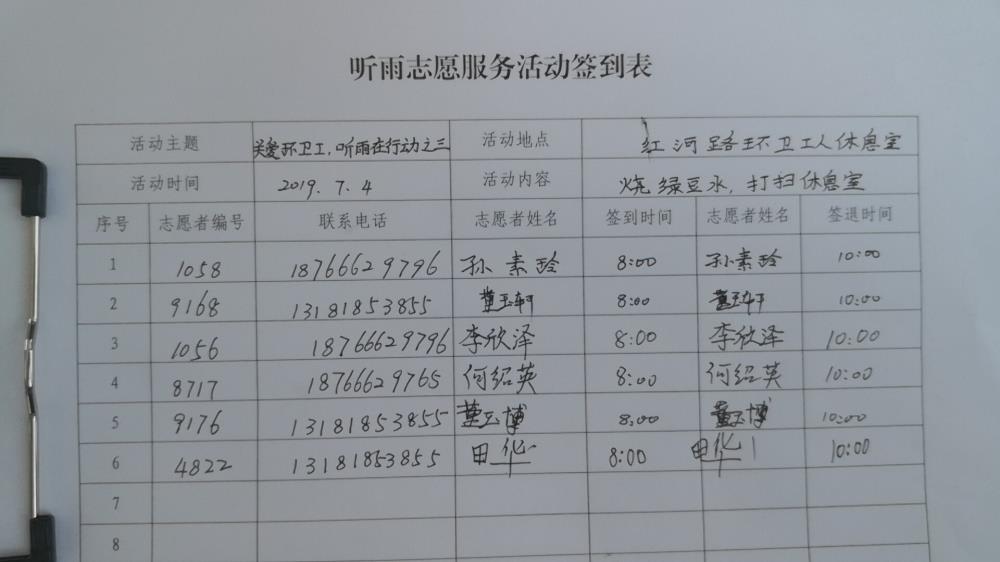 听雨志愿服务活动签到表
活动主题 关爱环卫工，听雨在行动之三 活动地点 红河路环卫工人休息室
活动时间 2019.7.4 活动内容 烧绿豆水，打扫休息室
序号 志愿者编号 联系电话 志愿者姓名 签到时间 志愿者姓名 签退时间
1 1058 18766629796 孙素玲 8:00 孙素玲 10:00
2 9168 13181853855 董玉轩 8:00 董玉轩 10:00
3 1056 18766629796 李欣泽 8:00 李欣泽 10:00
4 8717 18766629765 何绍英 8:00 何绍英 10:00
5 9176 13181853855 董玉博 8:00 董玉博 10:00
6 4822 13181853855 田华 8:00 田华 10:00
7
8